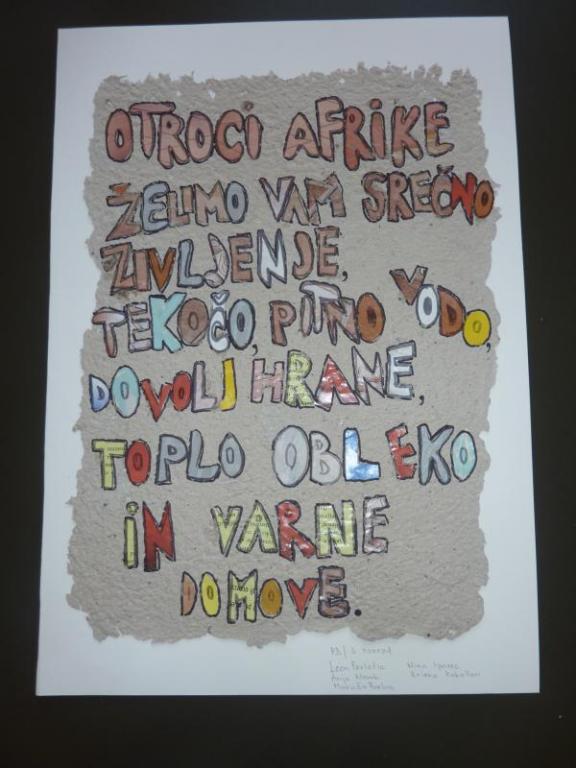 OTROCI AFRIKE
ŽELIMO VAM SREČNO
ŽIVLJENJE,
TEKOČO, PITNO VODO,
DOVOLJ HRANE,
TOPLO OBLEKO
IN VARNE
DOMOVE.